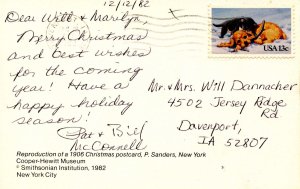 12/12/82
Dear Will & Marilyn,
Merry Christmas
and best wishes
for the coming
year! Have a
happy holiday
season!
Pat & Bill
McConnell
USA 13c
Mr. & Mrs. Will Dannacher
4502 Jersey Ridge
Rd
Davenport,
IA 52807
Reproduction of a 1906 Christmas postcard, P. Sanders, New York
Cooper-Hewitt Museum
© Smithsonian Institution, 1982
New York City